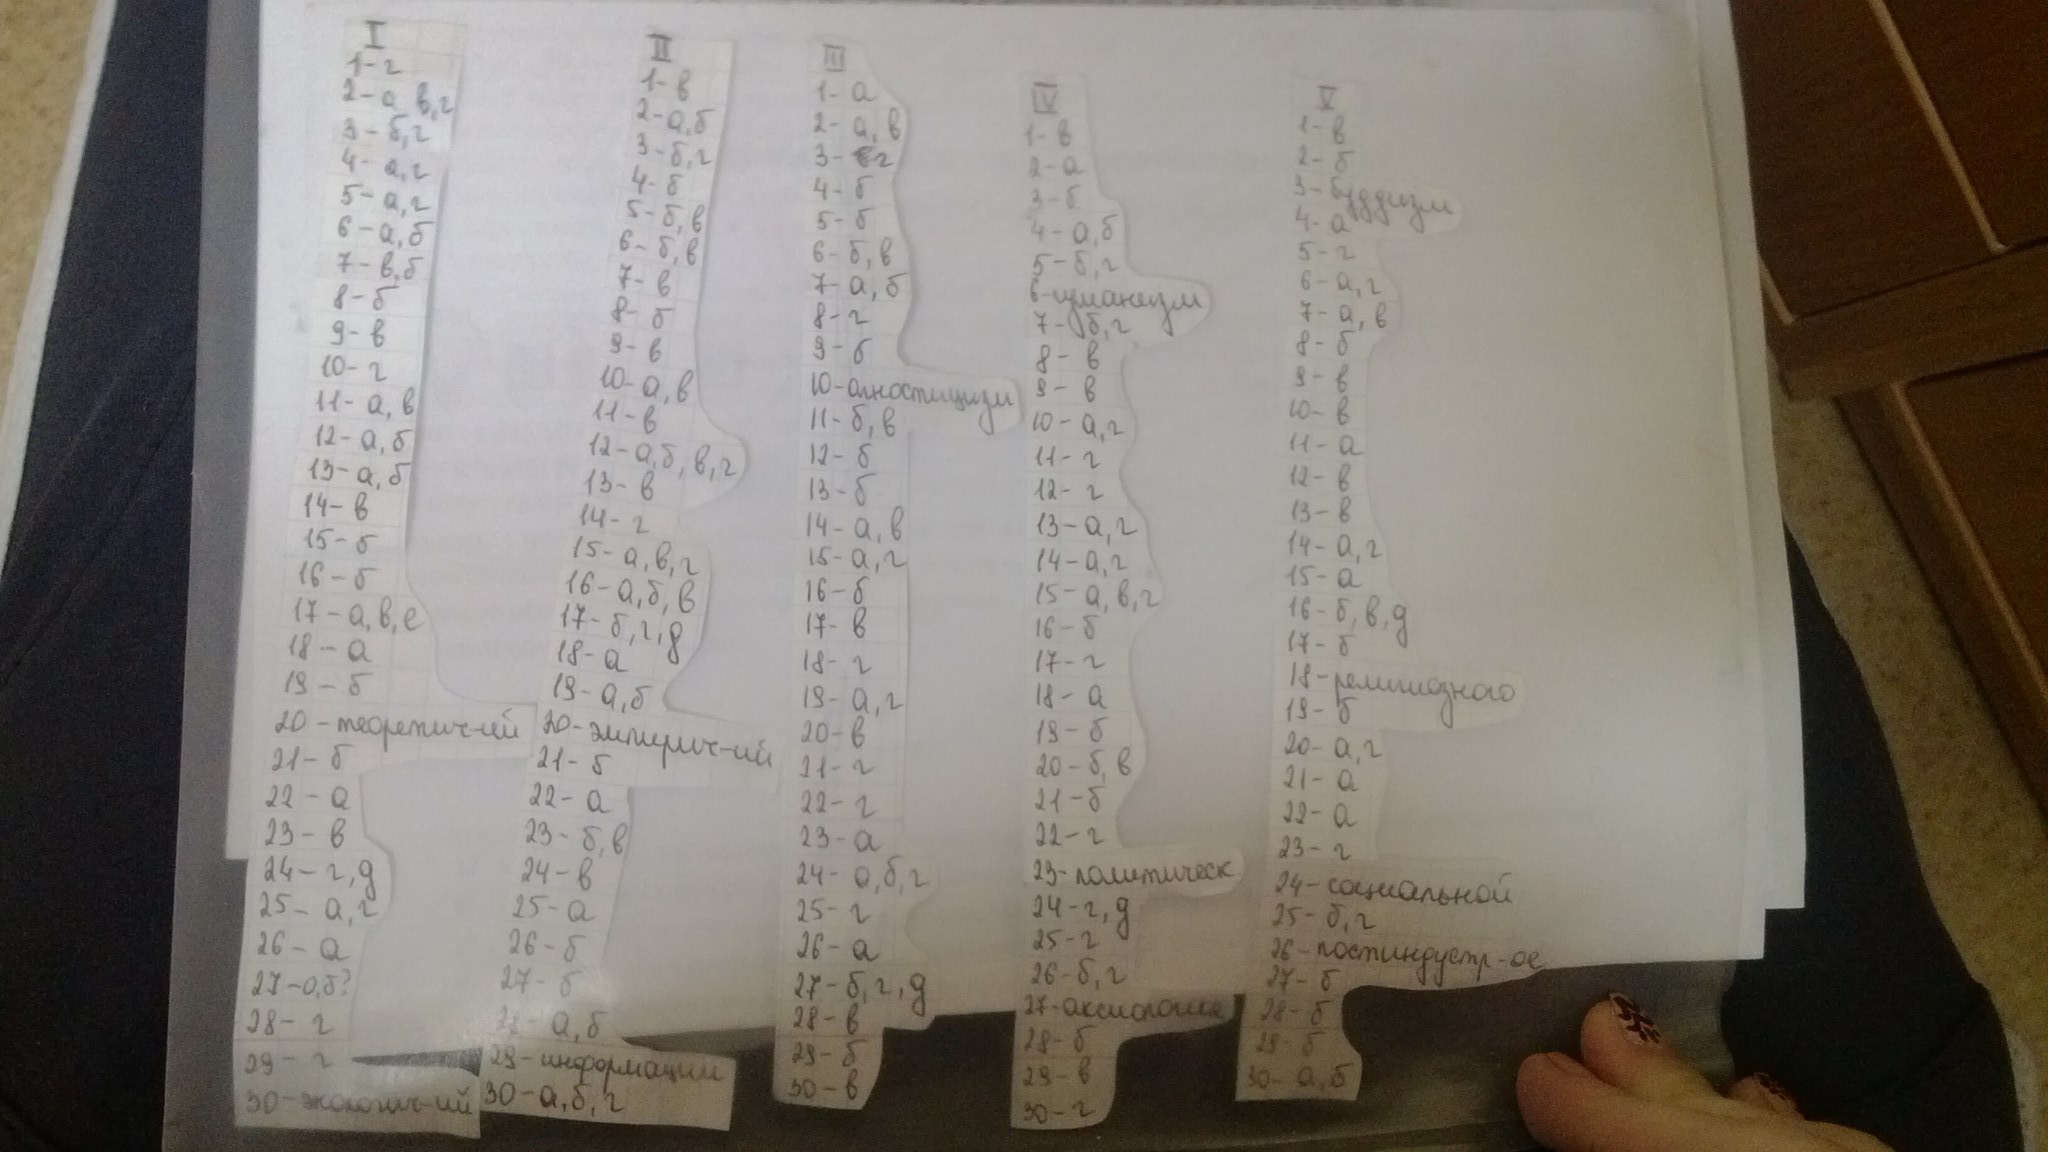 I
1-г
2-а, в,г
3-б,г
4-а,г
5-а,г
6-а,б
7-в,б
8-б
9-в
10-г
11-а,в
12-а,б
13-а,б
14-в
15-б
16-б
17-а,в,е
18-а
19-б
20-теоретич-ий
21-б
22-а
23-в
24-г,д
25-а,г
26-а
27-а,б?
28-г
29-г
30-экологич-ий
II
1-в
2-а,б
3-б,г
4-б
5-б,в
6-б,в
7-в
8-б
9-в
10-а,в
11-в
12-а,б,в,г
13-в
14-г
15-а,в,г
16-а,б,в
17-б,г,д
18-а
19-а,б
20-эмпирич-ий
21-б
22-а
23-б,в
24-в
25-а
26-б
27-б
28-а,б
29-информации
30-а,б,г
III
1-а
2-а,в
3-г
4-б
5-б
6-б,в
7-а,б
8-г
9-б
10-агностицизм
11-б,в
12-б
13-б
14-а,в
15-а,г
16-б
17-в
18-г
19-а,г
20-в
21-г
22-г
23-а
24-а,б,г
25-г
26-а
27-б,г,д
28-в
29-б
30-в
IV
1-в
2-а
3-б
4-а,б
5-б,г
6-гуманизм
7-б,г
8-в
9-в
10-а,г
11-г
12-г
13-а,г
14-а,г
15-а,в,г
16-б
17-г
18-а
19-б
20-б,в
21-б
22-г
23-политическ
24-г,д
25-г
26-б,г
27-аксиология
28-б
29-в
30-г
V
1-в
2-б
3-буддизм
4-а
5-г
6-а,г
7-а,в
8-б
9-в
10-в
11-а
12-в
13-в
14-а,г
15-а
16-б,в,д
17-б
18-религиозного
19-б
20-а,г
21-а
22-а
23-г
24-социальной
25-б,г
26-постиндустр-ое
27-б
28-б
29-б
30-а,б